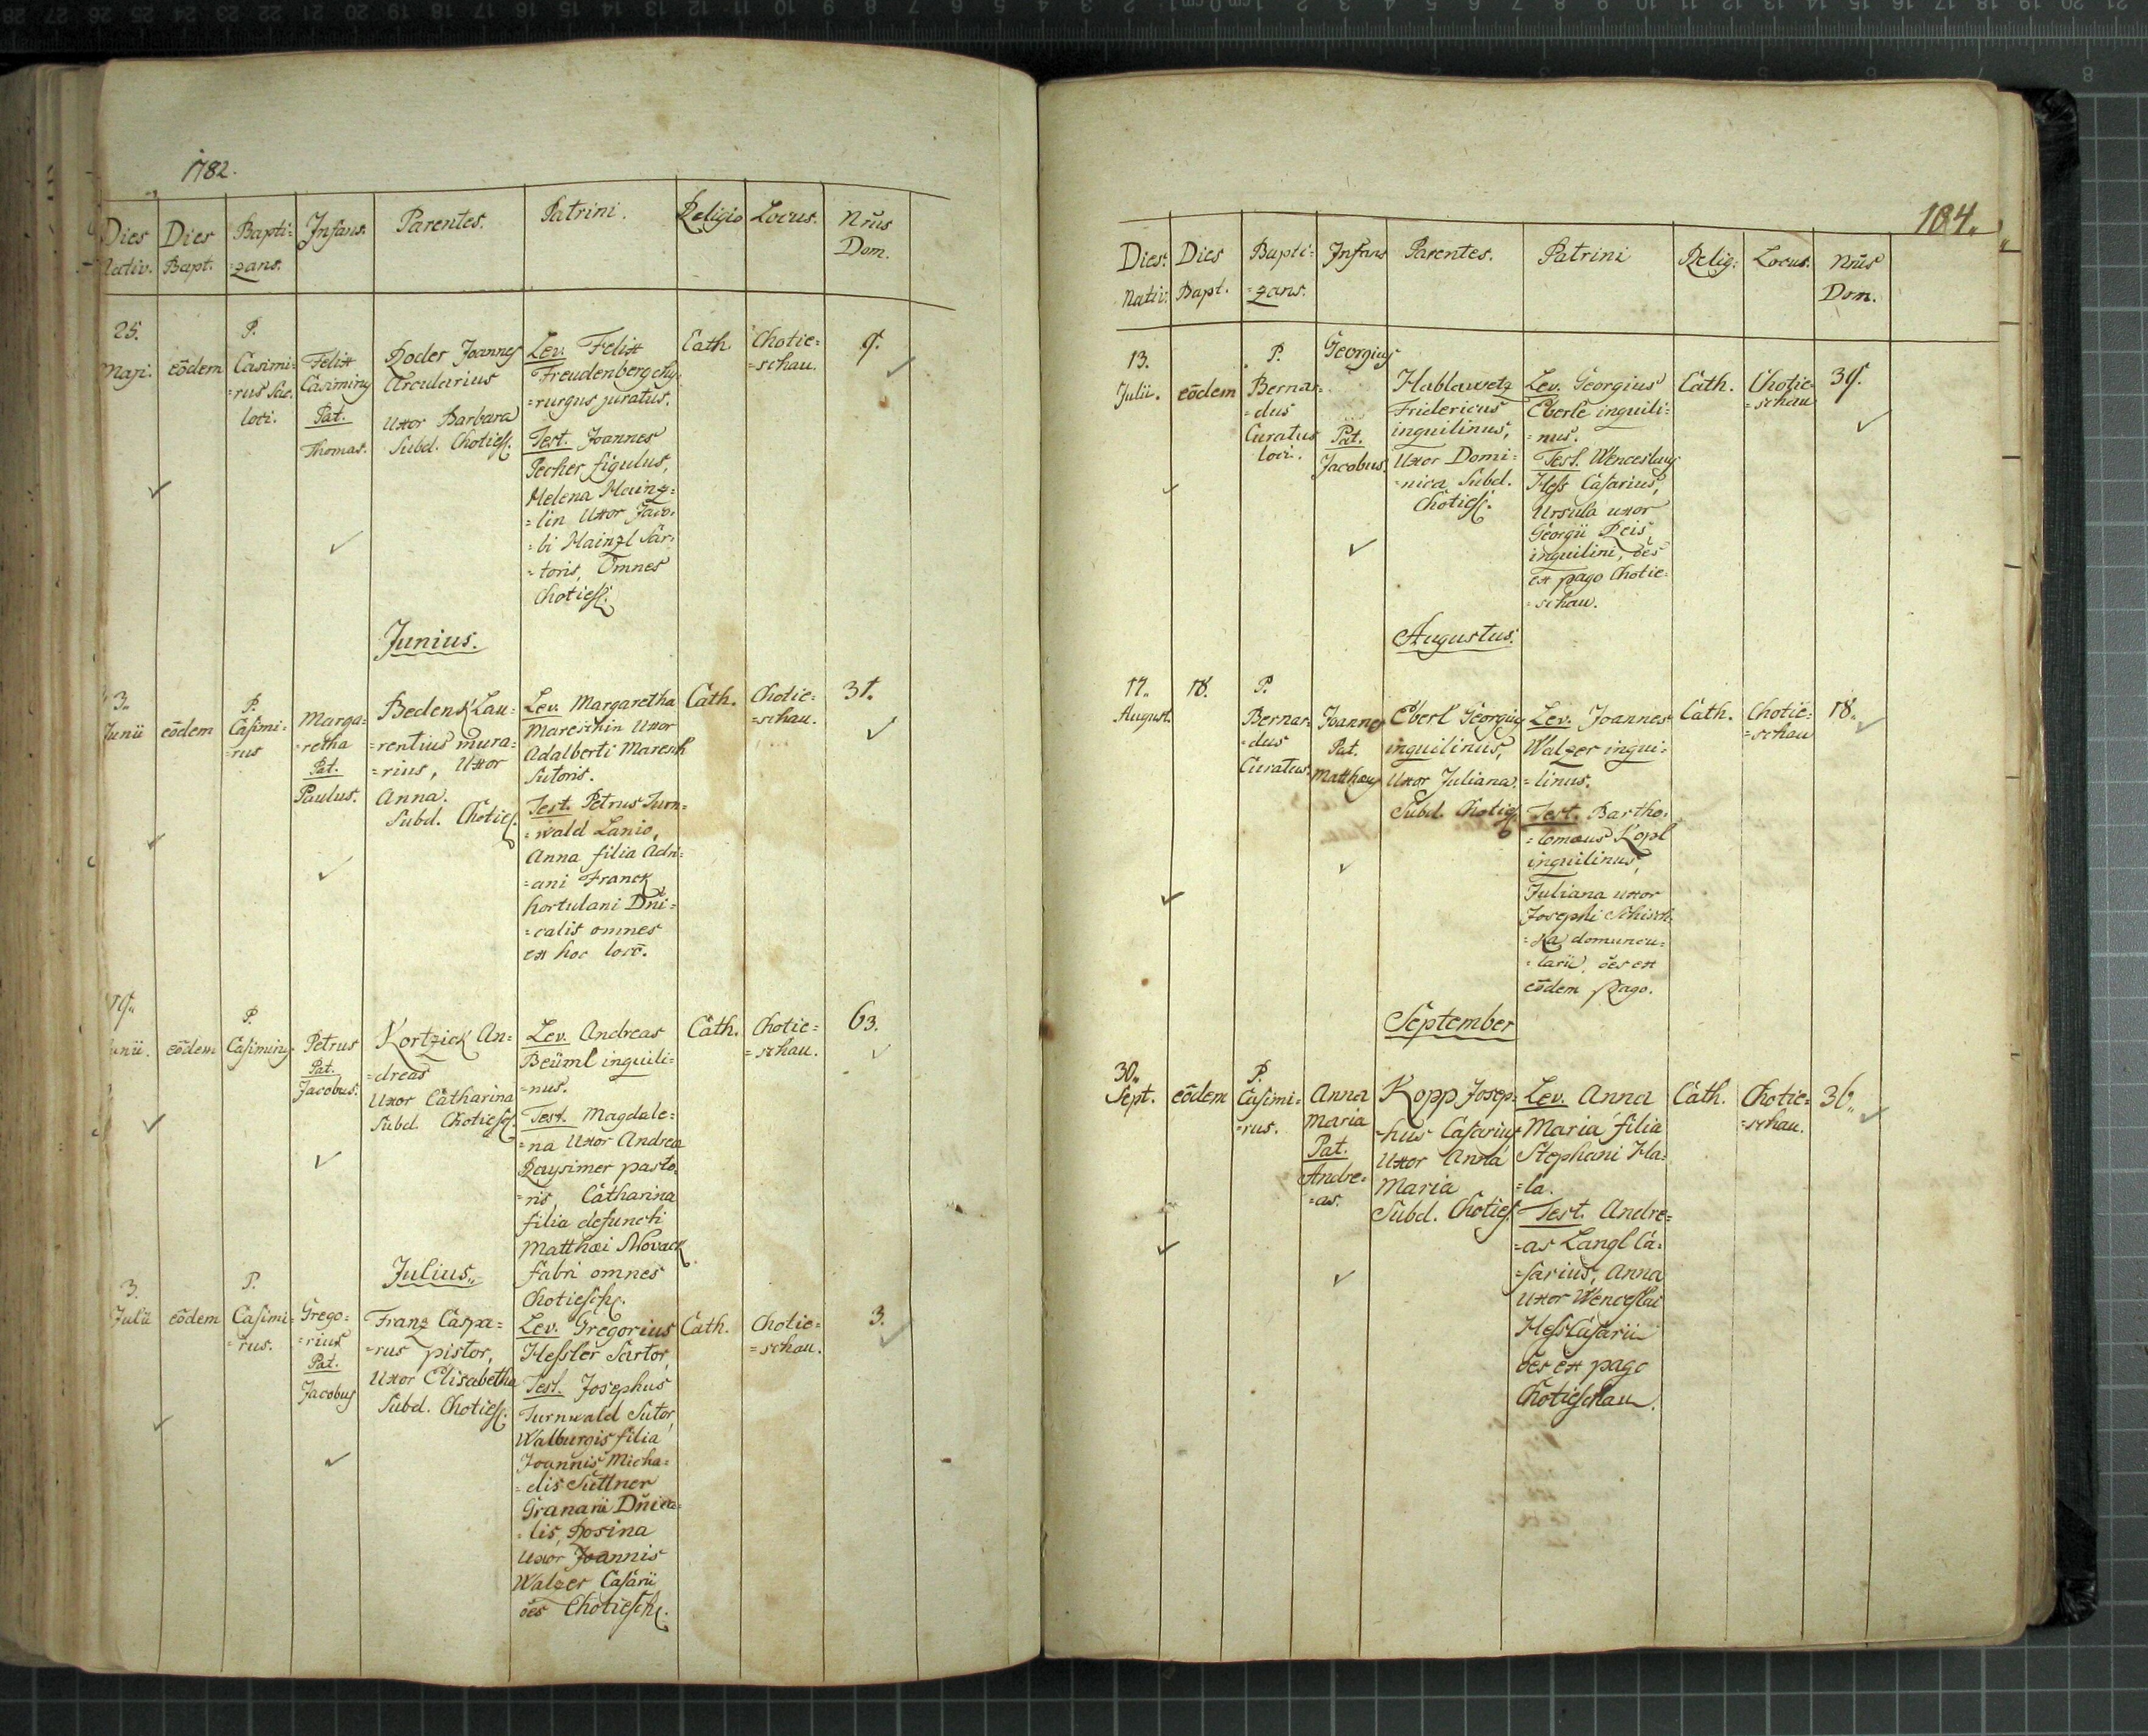 1782.
Dies Nativ.
Dies Bapt.
Bapti=
=zans.
Infans.
Parentes.
Patrini.
Religio
Locus.
Nrus
Dom.
25.
Maji.
eodem
P.
Casimi=
=rus Sac.
loci.
Felix
Casimirus
Pat.
Thomas.
Joannes
Arcularius
Uxor Barbara
Subd. Chotiess.
Lev. Felix
Freudenberg chy=
=rurgus juratus.
Test. Joannes
Pecher figulus,
Helena Hainz=
=lin Uxor Jaco=
=bi Hainzl Sar=
=toris, Omnes
Chotiess.
Cath.
Chotie=
=schau.
9.
Junius.
3.
Junii
eodem
P.
Casimi=
=rus
Marga=
=retha
Pat.
Paulus.
Bedensk Lau=
=rentius mura=
=rius, Uxor
Anna.
Subd. Chotiess.
Lev. Margaretha
Mareschin Uxor
Adalberti Maresch
Sutoris.
Test. Petrus Turn=
=wald Lanio,
Anna filia Adri=
=ani Franck
hortulani Dni=
=calis omnes
ex hoc loco.
Cath.
Chotie=
=schau.
31.
Junii.
eodem
P.
Casimirus
Petrus
Pat.
Jacobus.
Kortzick An=
=dreas
Uxor Catharina
Subd. Chotiess.
Lev. Andreas
Beüml inquili=
=nus.
Test. Magdale=
=na Uxor Andreæ
Raysimer pasto=
=ris, Catharina
filia defuncti
Matthæi Nowack
fabri omnes
Chotiesch.
Cath.
Chotie=
=schau.
63.
Julius.
3.
Julii
eodem
P.
Casimi=
=rus.
Grego=
=rius
Pat.
Jacobus
Franz Caspa=
=rus pistor,
Uxor Elisabetha
Subd. Chotiess.
Lev. Gregorius
Hessler Sartor,
Test. Josephus
Turnwald Sutor,
Walburgis filia
Joannis Micha=
=elis Suttner
Granarii Dnica=
=lis, Rosina
Uxor Joannis
Walzer Casarii
oes Chotiesch.
Cath.
Chotie=
=schau.
3.
184.
Dies.
Nativ.
Dies
Bapt.
Bapti=
=zans.
Infans
Parentes.
Patrini
Relig:
Locus.
Nrus
Dom.
13.
Julii.
eodem
P.
Bernar=
=dus
Curatus
loci.
Georgius
Pat.
Jacobus.
Hablawetz
Fridericus
inquilinus,
Uxor Domi=
=nica Subd.
Chotiess.
Lev. Georgius
Eberle inquili=
=nus.
Test. Wenceslaus
Hess Casarius,
Ursula uxor
Georgii Reis,
inquilini, oes
ex pago Chotie=
=schau.
Cath.
Chotie=
=schau
39.
Augustus.
17.
August.
18.
P.
Bernar=
=dus
Curatus.
Joannes
Pat.
Matthæus
Eberl Georgius
inquilinus,
Uxor Juliana.
Subd. Chotiess.
Lev. Joannes
Walzer inqui=
=linus.
Test. Bartho=
=lomæus Kopl
inquilinus,
Juliana uxor
Josephi Schisch=
=ka domuncu=
=larii, oes ex
eodem pago.
Cath.
Chotie=
=schau
18.
September
30.
Sept.
eodem
P.
Casimi=
=rus.
Anna
Maria
Pat.
Andre=
=as.
Kopp Josep=
=hus Casarius
Uxor Anna
Maria
Subd. Chotiess.
Lev. Anna
Maria filia
Stephani Ha=
=la.
Test. Andre=
=as Langl Ca=
=sarius, Anna
Uxor Wenceslai
Hess Casarii
oes ex pago
Chotieschau.
Cath.
Chotie=
=schau.
36.